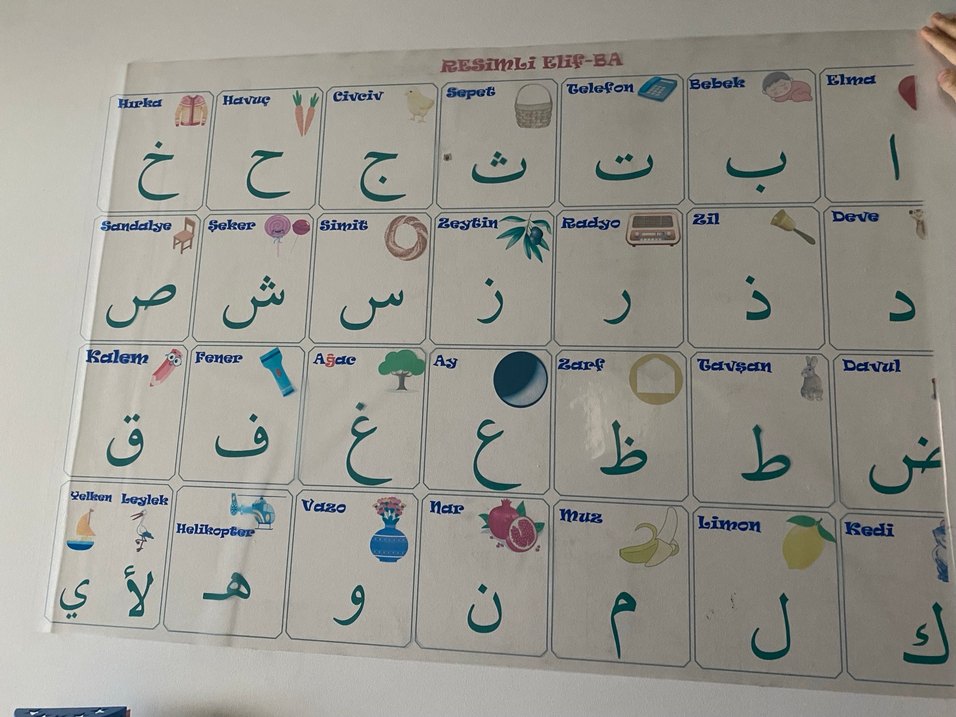 RESİMLİ ELİF-BA
Hırka Havuç Civciv Sepet Telefon Bebek Elma
خ ح ج ث ت ب ا
Sandalye Şeker Simit Zeytin Radyo Zil Deve
ص ش س ز ر ذ د
Kalem Fener Ağac Ay Zarf Tavşan Davul
ق ف غ ع ظ ط ض
Yelken Leylek Helikopter Vazo Nar Muz Limon Kedi
ي لأ هـ و ن م ل ك